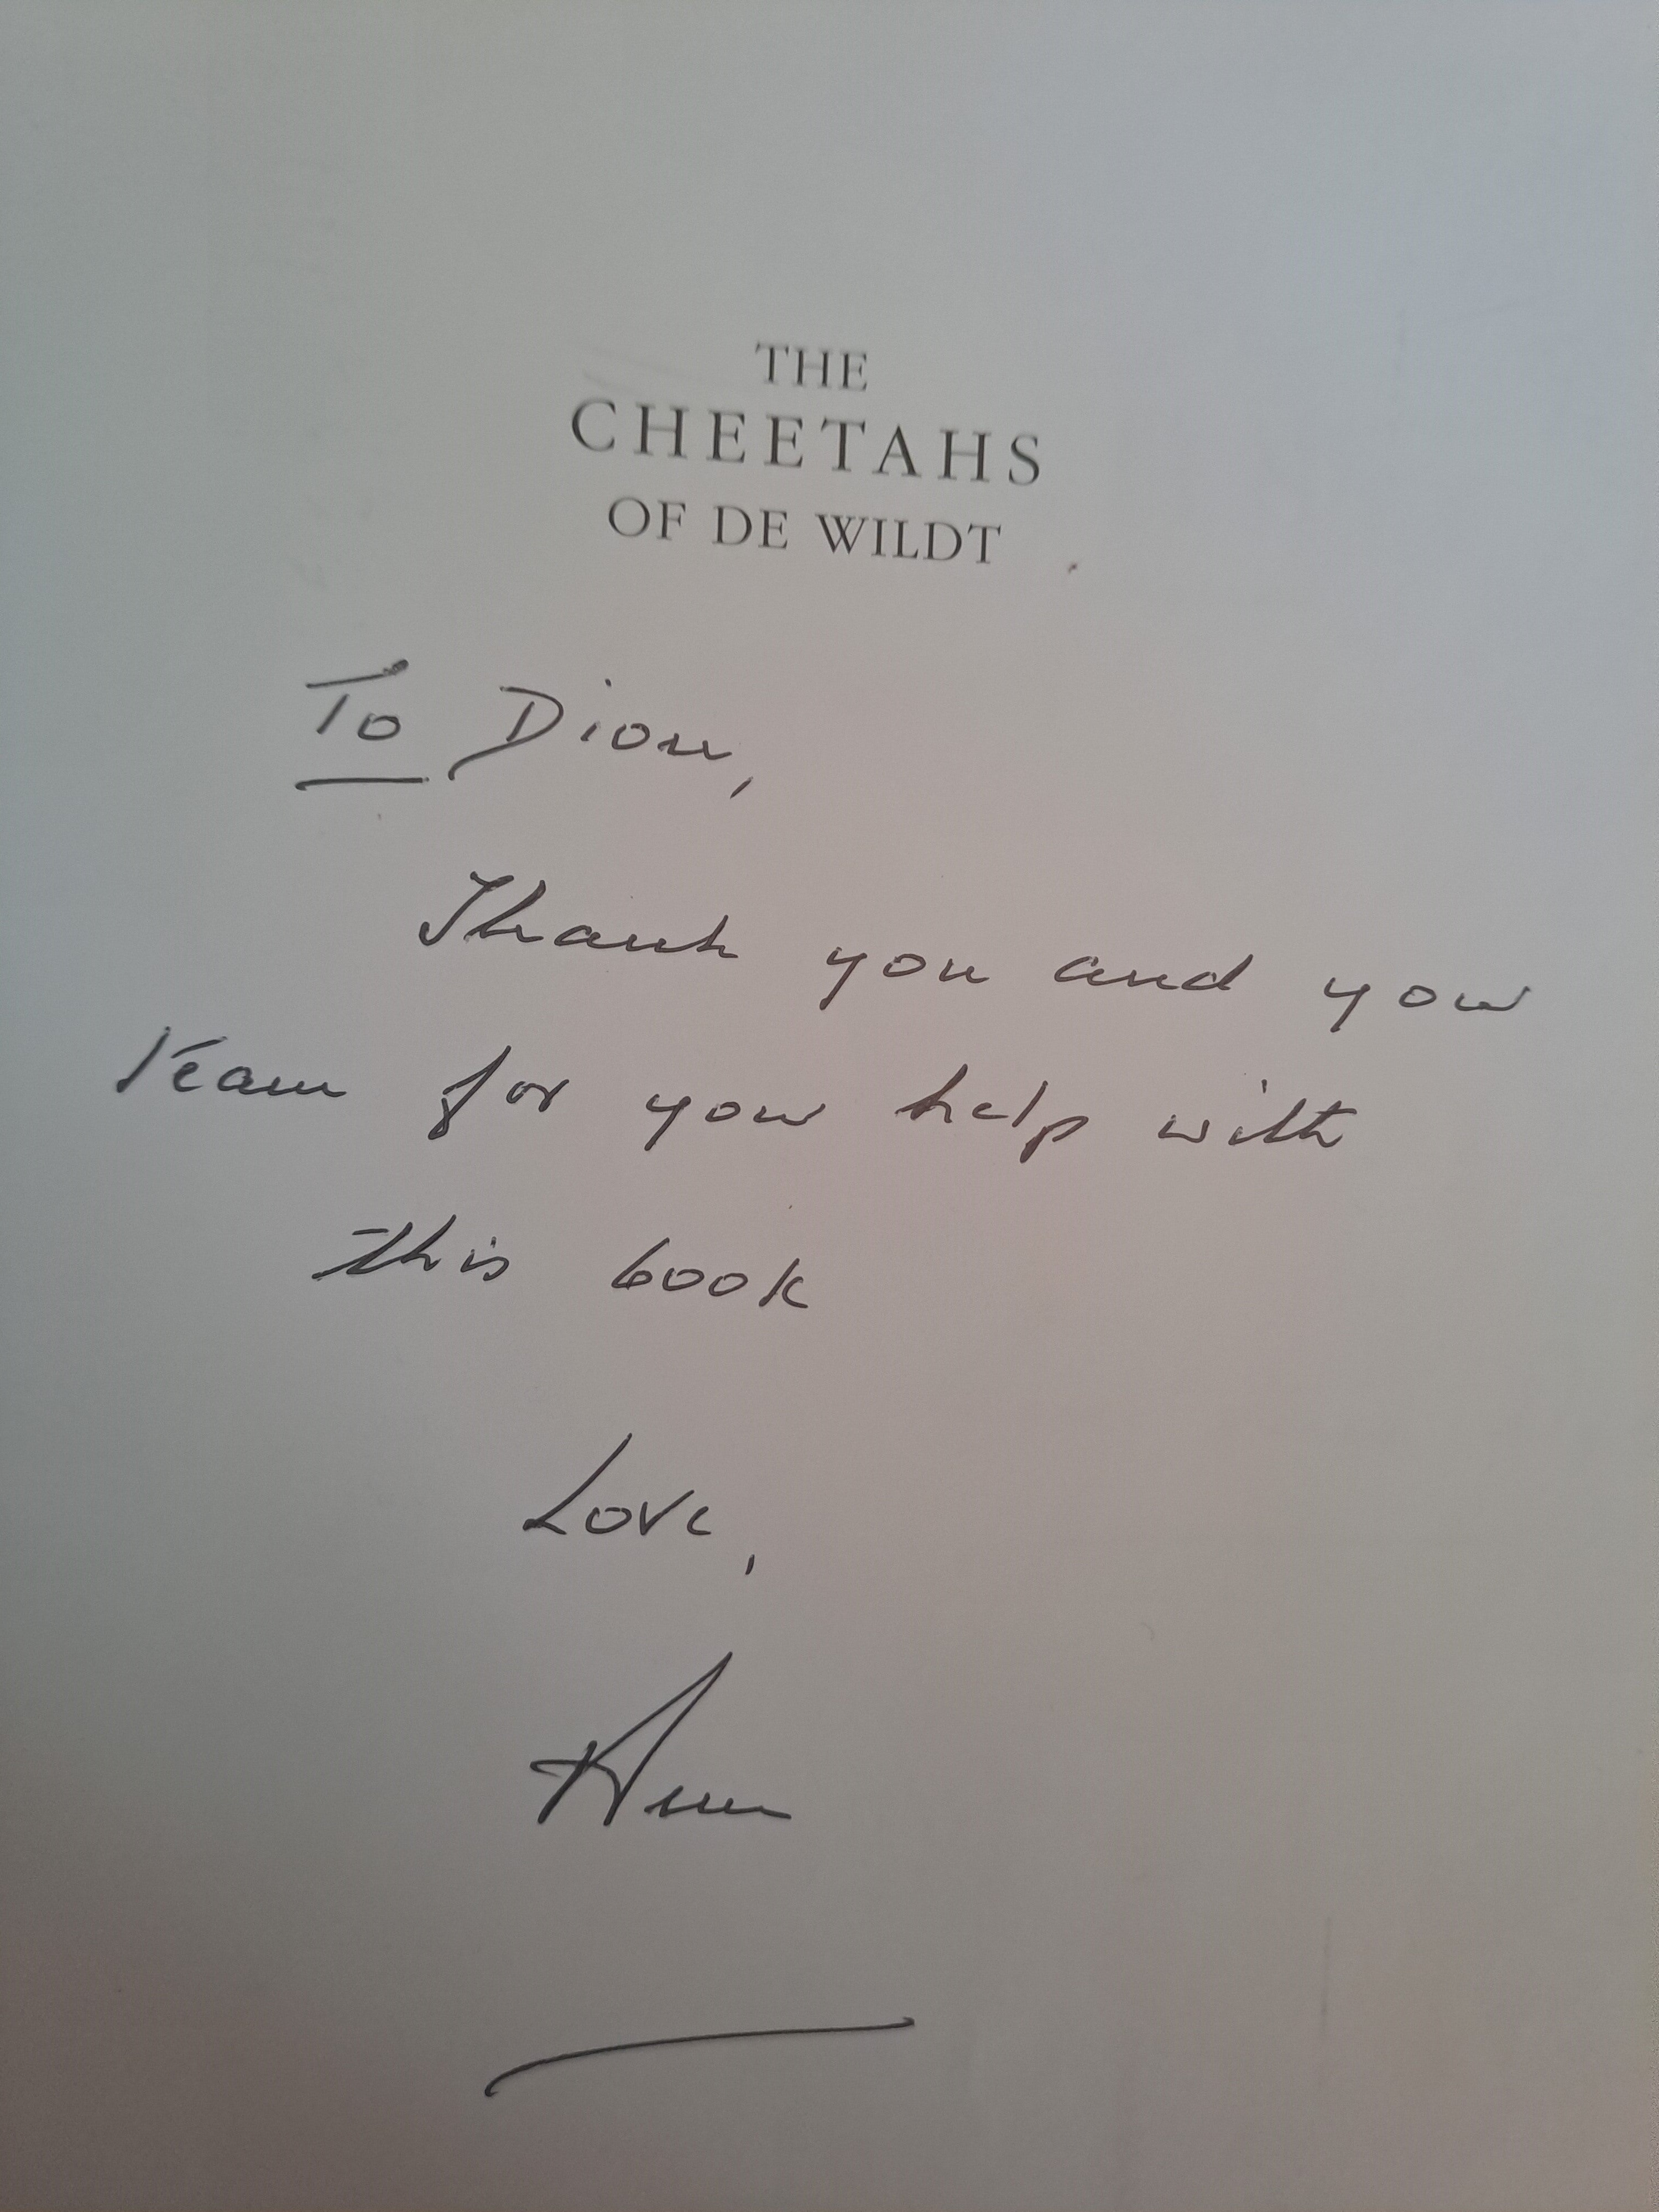 THE
CHEETAHS
OF DE WILDT
To Dion,
Thank you and your
team for your help with
this book
Love,
Ann